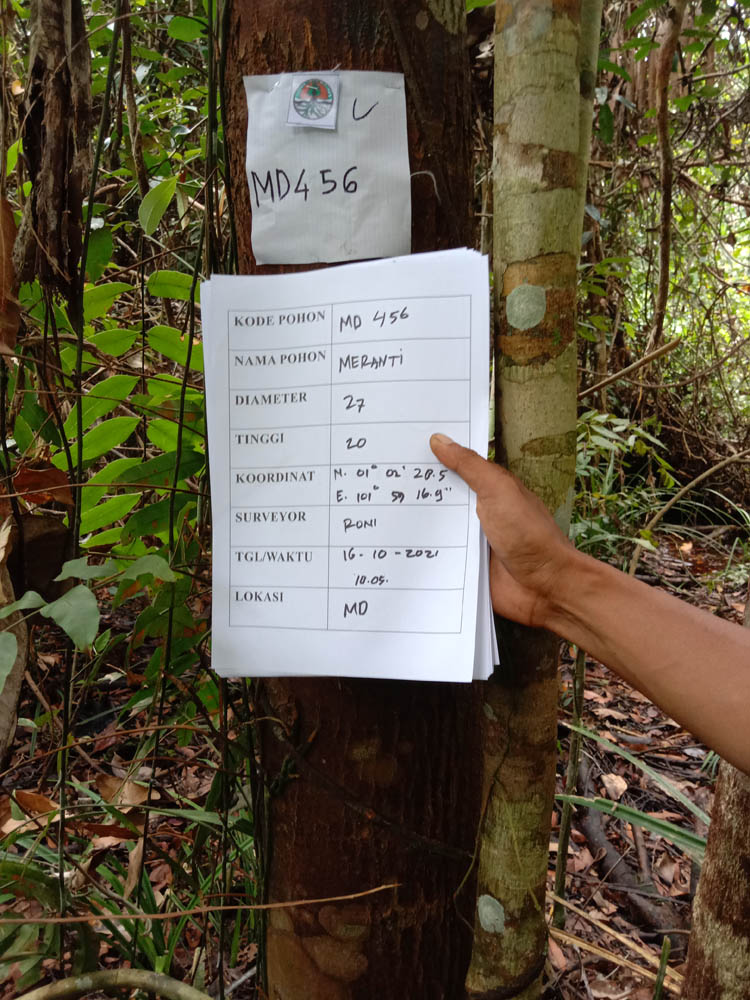 MD456
KODE POHON MD 456
NAMA POHON MERANTI
DIAMETER 27
TINGGI 20
KOORDINAT N. 01° 02' 28.5
E. 101° 59 16.9"
SURVEYOR RONI
TGL/WAKTU 16-10-2021
10.05.
LOKASI MD